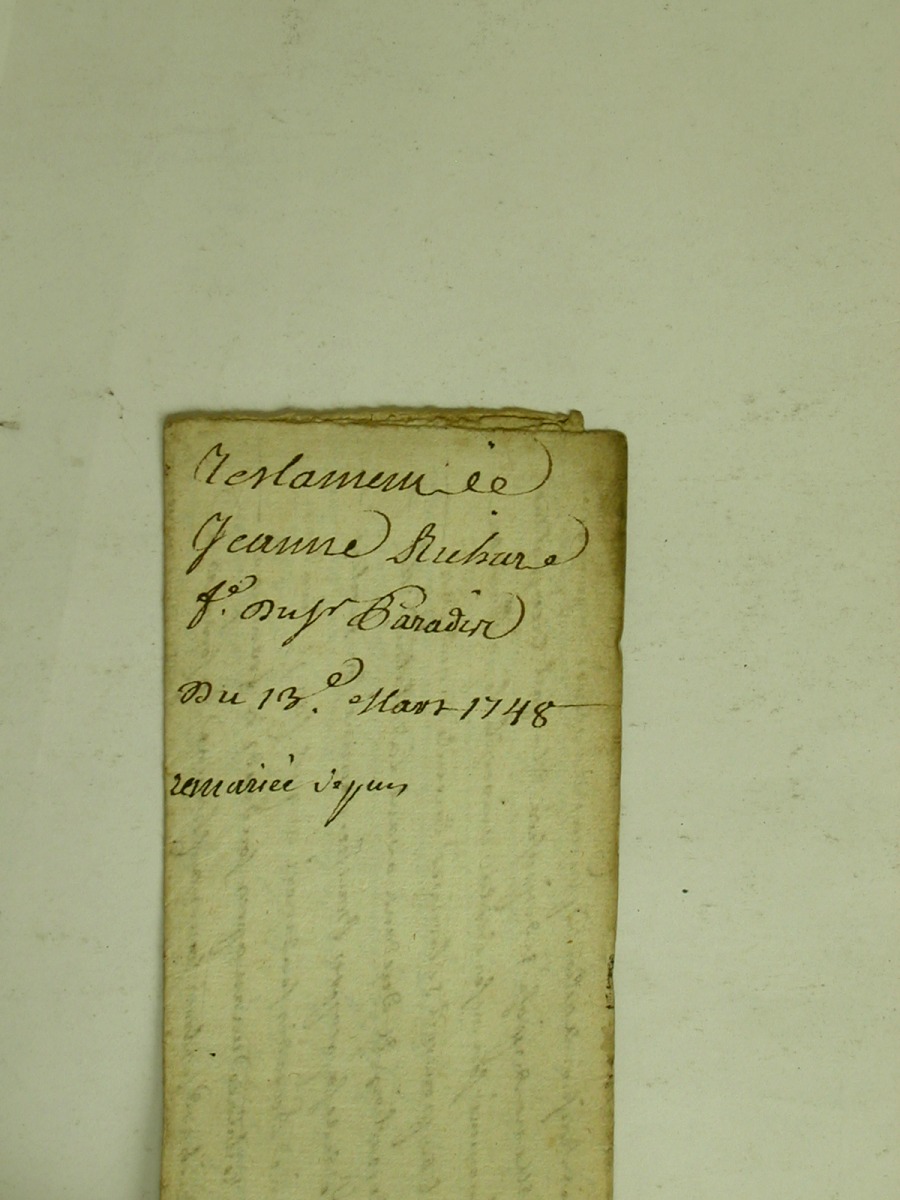 Testament de
Jeanne Richard
fe. Du sr Paradis
Du 13.e Mars 1748
remariée depuis